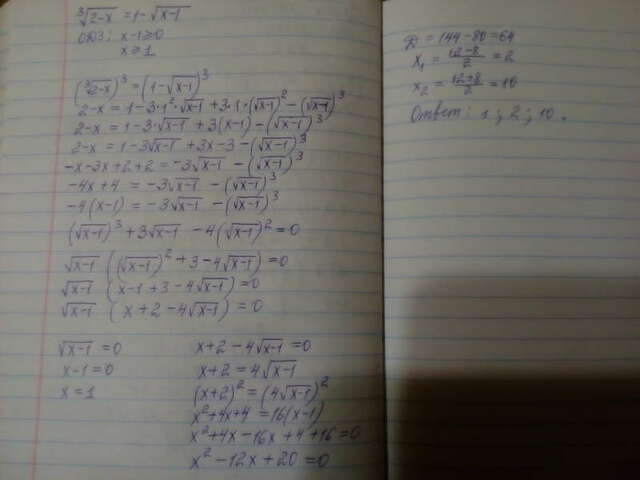 ∛(2-x) = 1-√(x-1)
ОДЗ: x-1≥0
x≥1
(∛(2-x))³ = (1-√(x-1))³
2-x = 1-3·1²·√(x-1) + 3·1·(√(x-1))² - (√(x-1))³
2-x = 1-3·√(x-1) + 3(x-1) - (√(x-1))³
2-x = 1-3√(x-1) + 3x-3 - (√(x-1))³
-x-3x+2+2 = -3√(x-1) - (√(x-1))³
-4x+4 = -3√(x-1) - (√(x-1))³
-4(x-1) = -3√(x-1) - (√(x-1))³
(√(x-1))³ + 3√(x-1) - 4(√(x-1))² = 0
√(x-1) ((√(x-1))² + 3 - 4√(x-1)) = 0
√(x-1) (x-1+3-4√(x-1)) = 0
√(x-1) (x+2-4√(x-1)) = 0
√(x-1) = 0
x-1=0
x=1
x+2-4√(x-1) = 0
x+2 = 4√(x-1)
(x+2)² = (4√(x-1))²
x²+4x+4 = 16(x-1)
x²+4x-16x+4+16=0
x²-12x+20=0
D = 144-80=64
x₁ = (12-8)/2 = 2
x₂ = (12+8)/2 = 10
Ответ: 1; 2; 10.